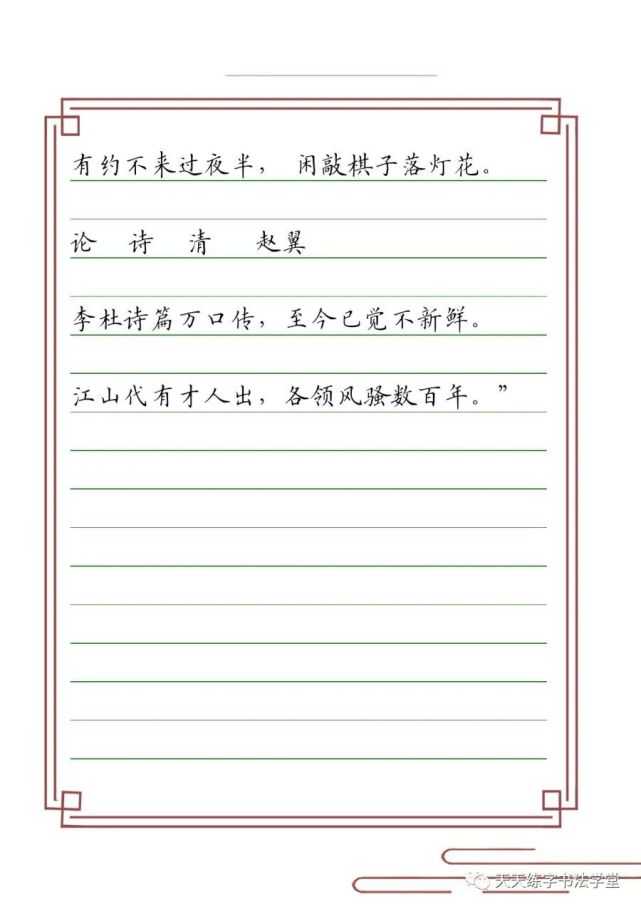 有约不来过夜半， 闲敲棋子落灯花。
论 诗 清 赵翼
李杜诗篇万口传，至今已觉不新鲜。
江山代有才人出，各领风骚数百年。”
天天练字书法学堂